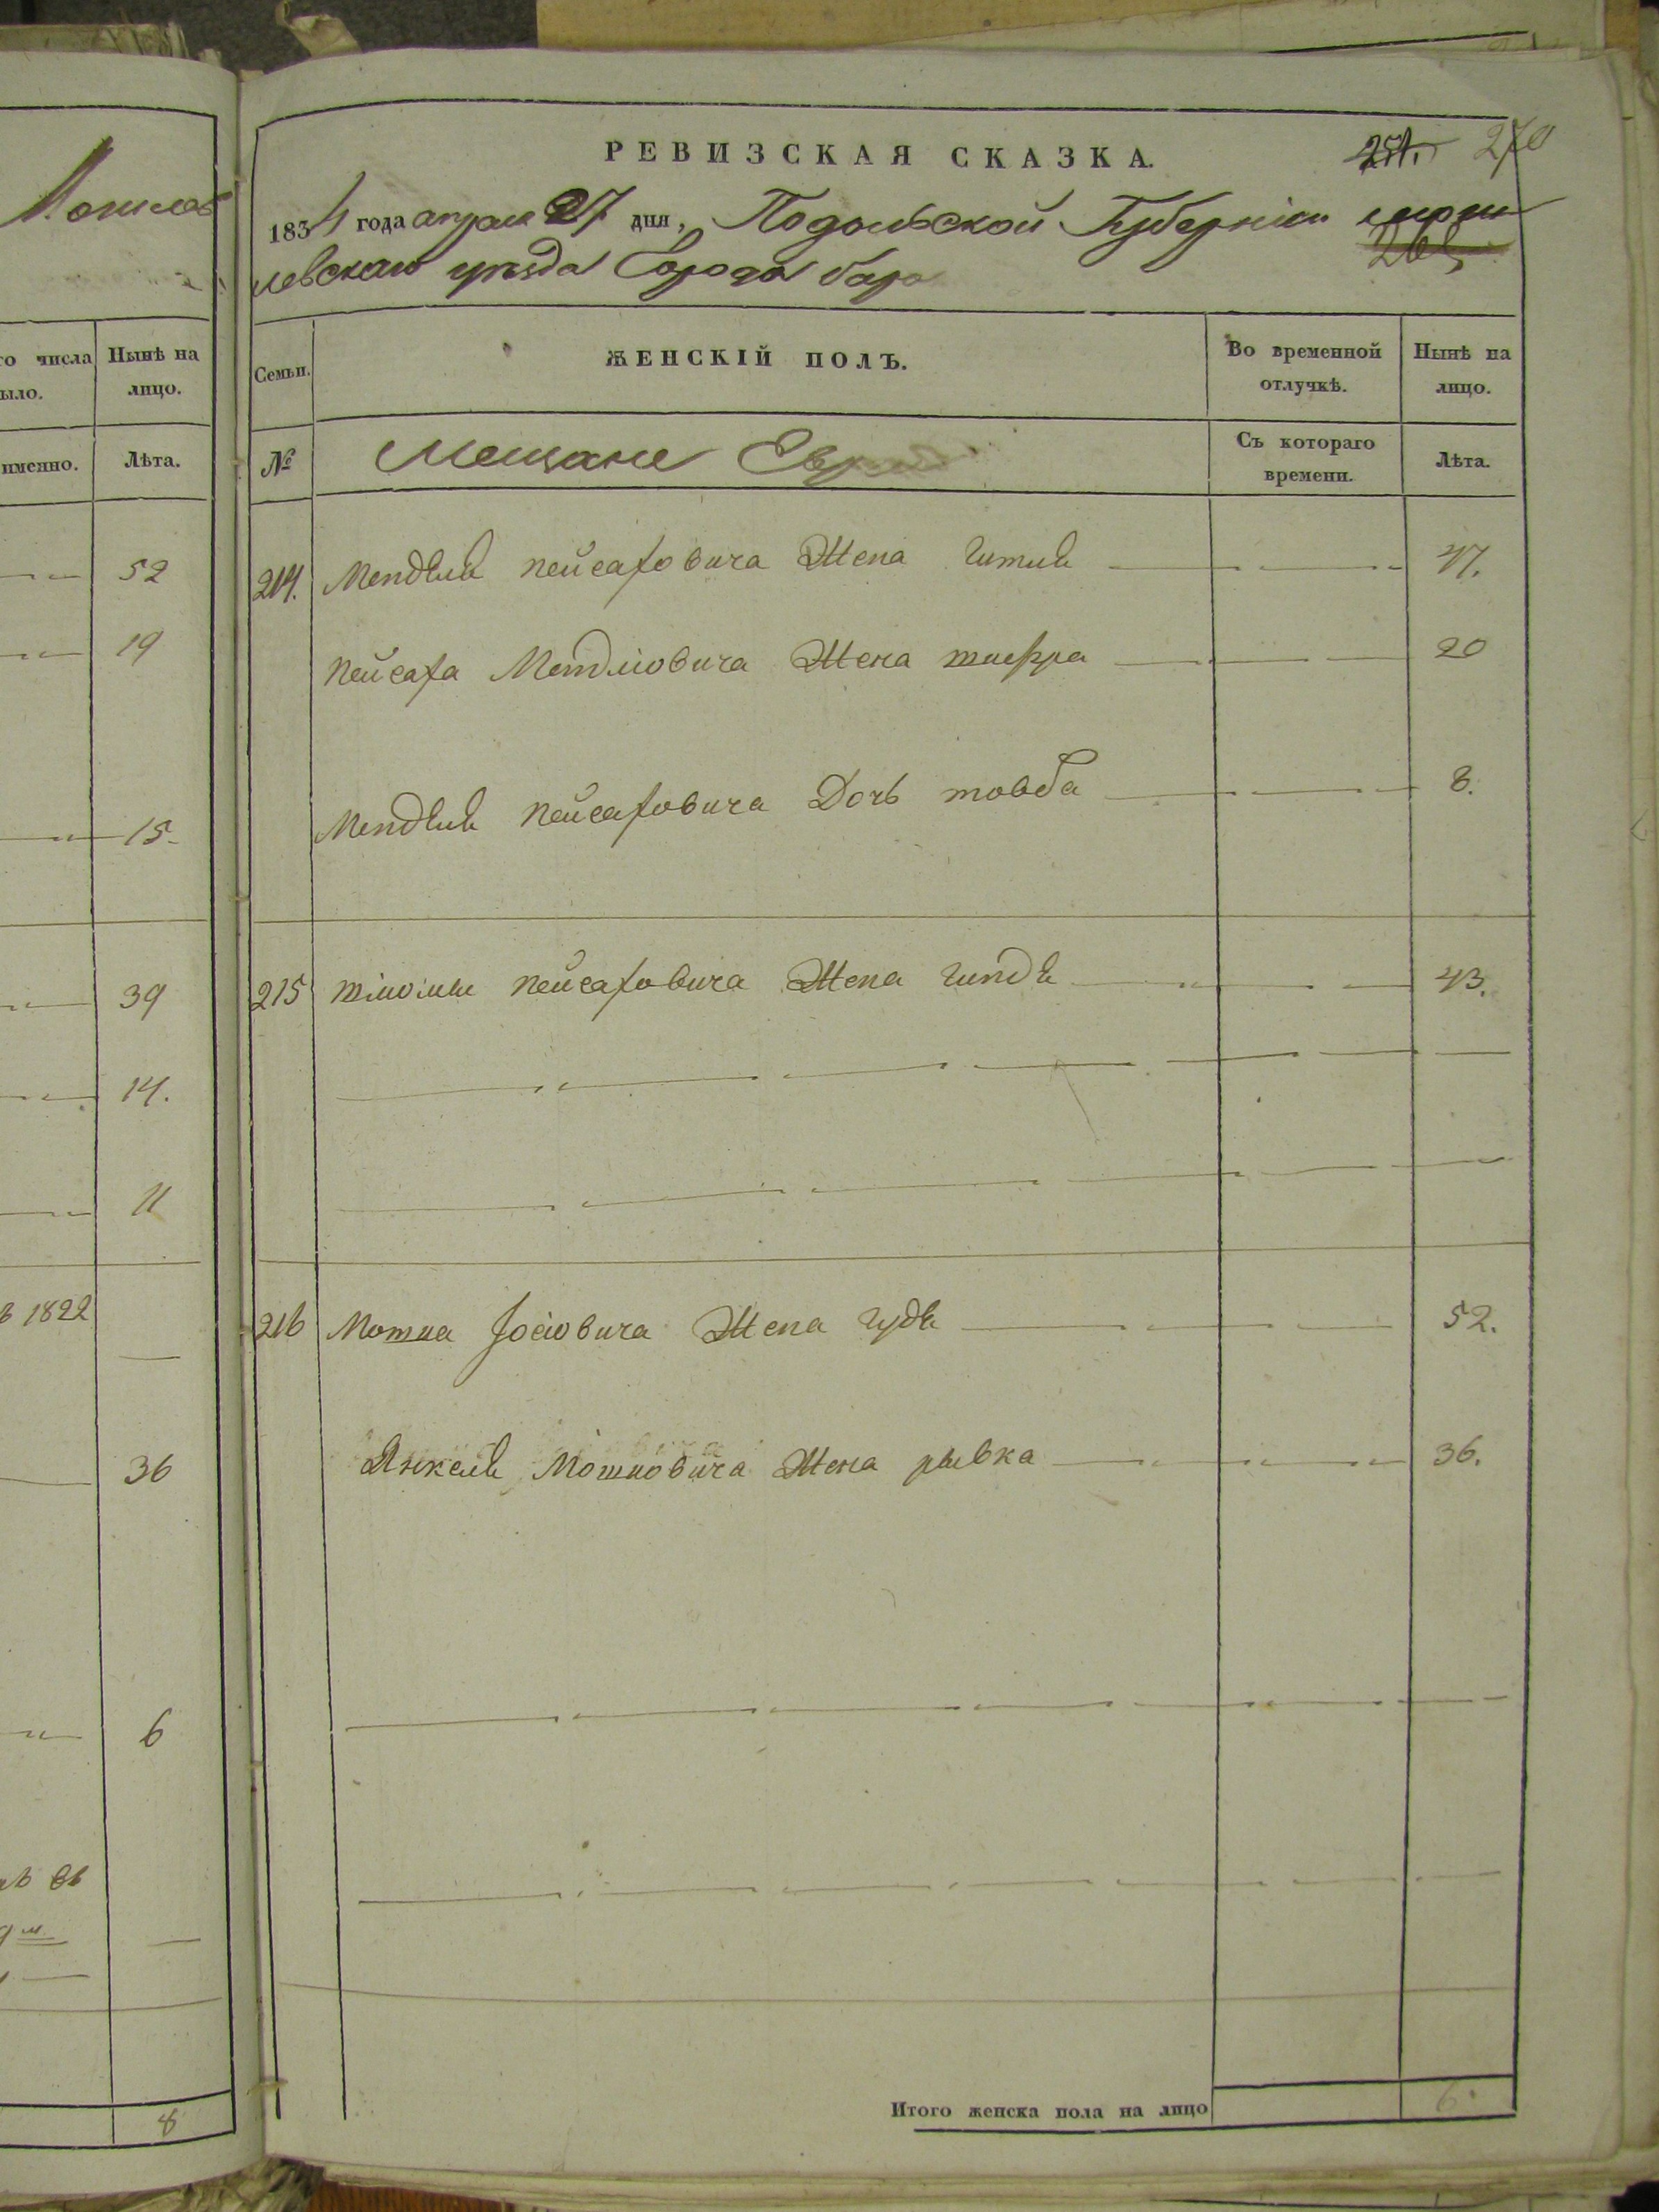 Могилев
го числа
было.
Нынѣ на
лицо.
именно.
Лѣта.
52
19
15.
39
14.
11
в 1822
36
6
8
РЕВИЗСКАЯ СКАЗКА.
254. 270
1834 года апреля 27 дня, Подольской Губерніи моги
268
левскаго уѣзда Города бара
Семьи.
ЖЕНСКІЙ ПОЛЪ.
Во временной
отлучкѣ.
Нынѣ на
лицо.
№
Мещане Евреи
Съ котораго
времени.
Лѣта.
214. Мендели пейсаховича Жена Гитля 47.
пейсаха Менделіовича Жена шифра 20
Мендели пейсаховича Дочь товба 8.
215 шліоми пейсаховича Жена гинда 43.
216 Мошка Іосіовича Жена гуда 52.
Янкеля Мошковича Жена рывка 36.
Итого женска пола на лицо 6.